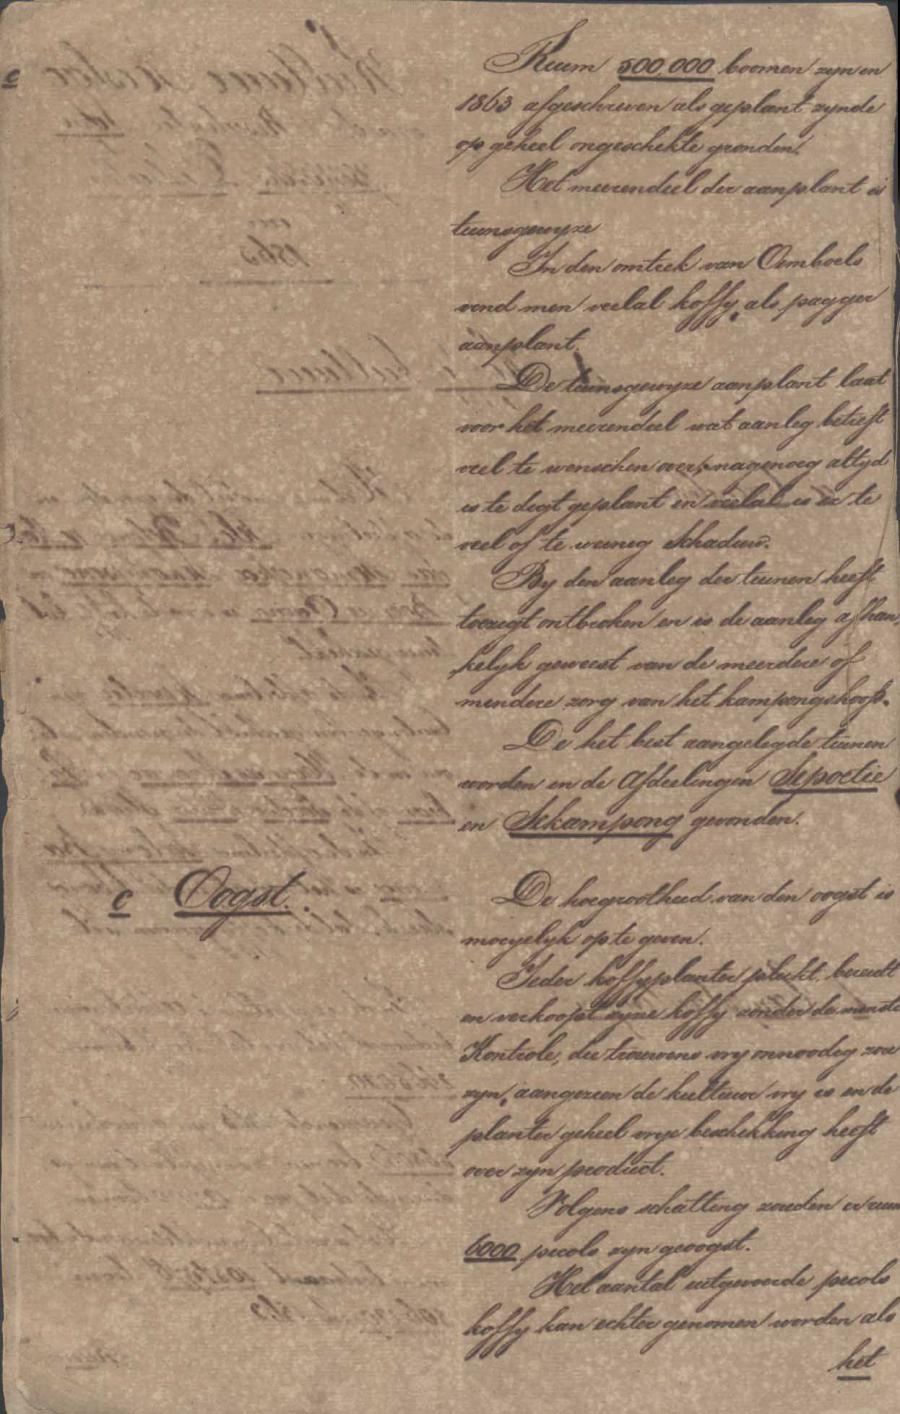 Ruim 500,000 boomen zyn in
1863 afgeschreven als geplant zynde
op geheel ongeschikte gronden.
Het meerendeel der aanplant is
tuinsgewyze
In den omtrek van Oemboels
vind men veelal koffy als pagger
aanplant.
De tuinsgewyze aanplant laat
voor het meerendeel wat aanleg betreft
veel te wenschen over, nagenoeg altyd
is te digt geplant en veelal is er te
veel of te weinig schaduw.
By den aanleg der tuinen heeft
toezigt ontbroken en is de aanleg afhan
kelyk geweest van de meerdere of
mindere zorg van het kampongshoofd.
De het best aangelegde tuinen
worden in de Afdeelingen Sepoetie
en Sekampong gevonden.
c Oogst.
De hoegrootheid van den oogst is
moeyelyk op te geven.
Ieder koffyplanter plukt, bereidt
en verkoopt zyne koffy zonder de minste
Kontrole, die trouwens vry onnoodig zou
zyn, aangezien de kultuur vry is en de
planter geheel vrye beschikking heeft
over zyn product.
Volgens schatting zouden er ruim
6000 picols zyn geoogst.
Het aantal uitgevoerde picols
koffy kan echter genomen worden als
het